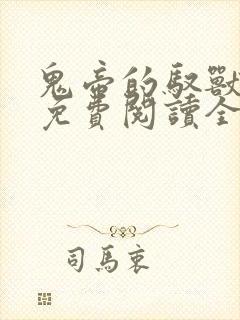 鬼帝的馭獸
免費閱讀全
司馬衷